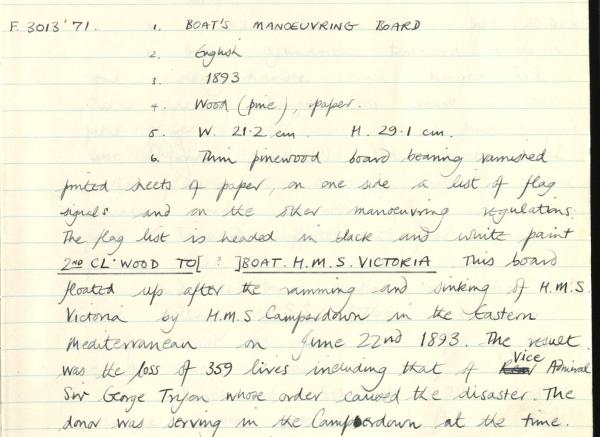 F. 3013'71. 1. BOAT'S MANOEUVRING BOARD
2. English
3. 1893
4. Wood (pine), paper.
5. W. 21·2 cm. H. 29·1 cm.
6. Thin pinewood board bearing varnished
printed sheets of paper, on one side a list of flag
signals and on the other manoeuvring regulations.
The flag list is headed in black and white paint
2ND CL· WOOD TO[ ? ]BOAT. H.M.S. VICTORIA This board
floated up after the ramming and sinking of H.M.S.
Victoria by H.M.S Camperdown in the Eastern
Mediterranean on June 22nd 1893. The result
was the loss of 359 lives including that of Vice Admiral
Sir George Tryon whose order caused the disaster. The
donor was serving in the Camperdown at the time.